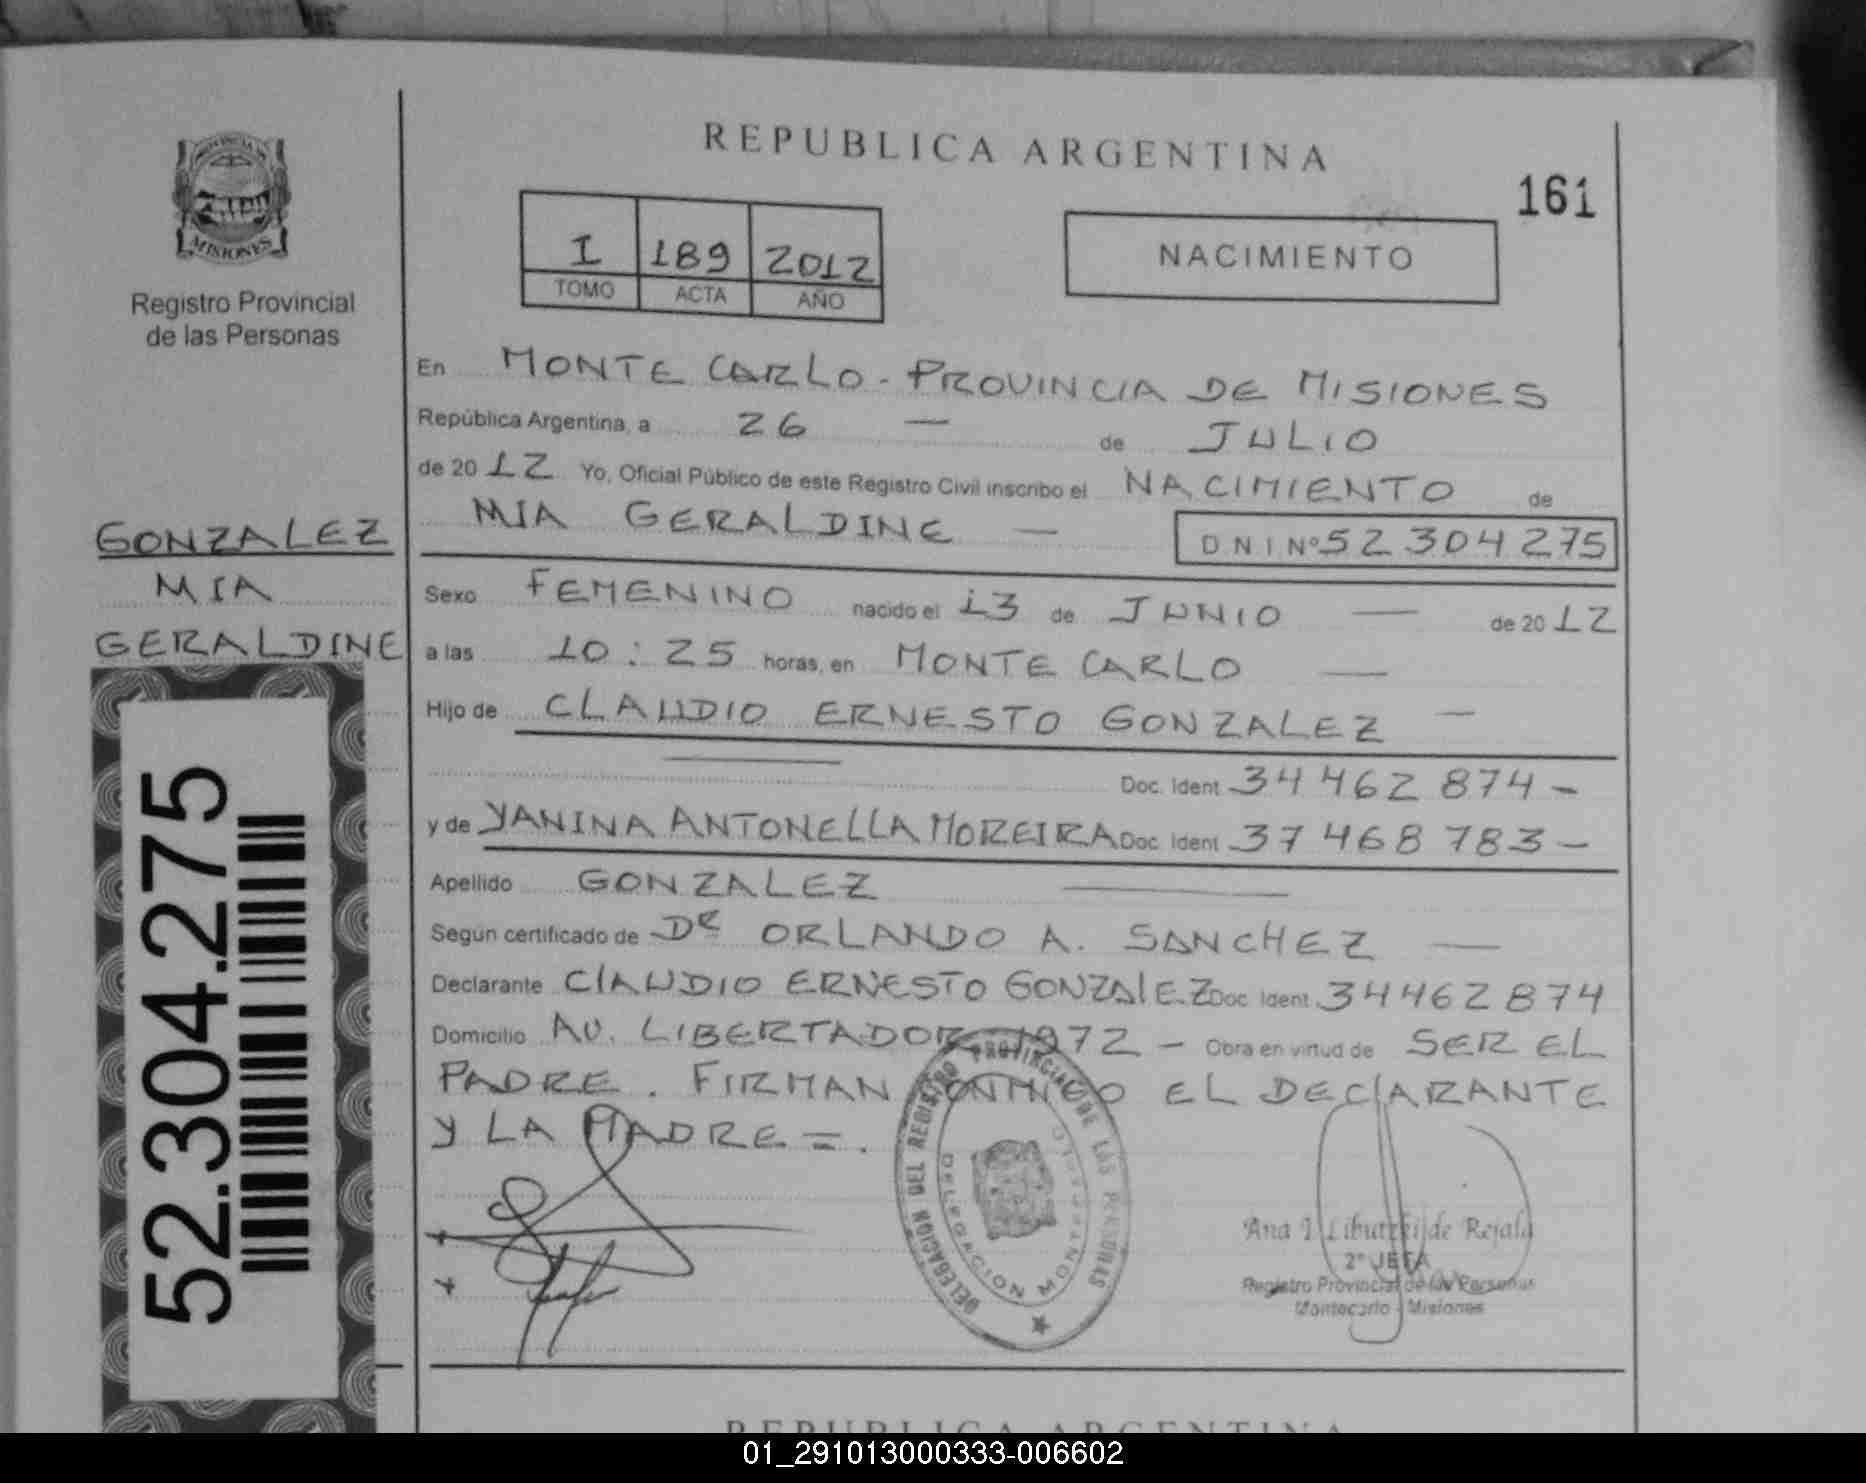 REPUBLICA ARGENTINA
161
PROVINCIA DE
MISIONES
Registro Provincial
de las Personas
I 189 2012
TOMO ACTA AÑO
NACIMIENTO
En MONTE CARLO - PROVINCIA DE MISIONES
República Argentina, a 26 — de JULIO
de 20 12 Yo, Oficial Público de este Registro Civil inscribo el NACIMIENTO de
MIA GERALDINE —
D N I Nº 52 304 275
GONZALEZ
MIA
GERALDINE
Sexo FEMENINO nacido el 13 de JUNIO — de 20 12
a las 10:25 horas, en MONTE CARLO —
Hijo de CLAUDIO ERNESTO GONZALEZ —
Doc. Ident. 34 462 874 -
y de YANINA ANTONELLA MOREIRA Doc. Ident. 37 468 783 -
Apellido GONZALEZ
Según certificado de Dr ORLANDO A. SANCHEZ —
Declarante CLAUDIO ERNESTO GONZALEZ Doc. Ident. 34462874
Domicilio AV. LIBERTADOR 1972 - Obra en virtud de SER EL
PADRE. FIRMAN CONMIGO EL DECLARANTE
Y LA MADRE =.
52.304.275
DELEGACION DEL REGISTRO PROVINCIAL DE LAS PERSONAS
DELEGACION MONTE
Ana I. de Rejala
2º JEFA
Registro Provincial de las Personas
Montecarlo - Misiones
REPUBLICA ARGENTINA
01_291013000333-006602